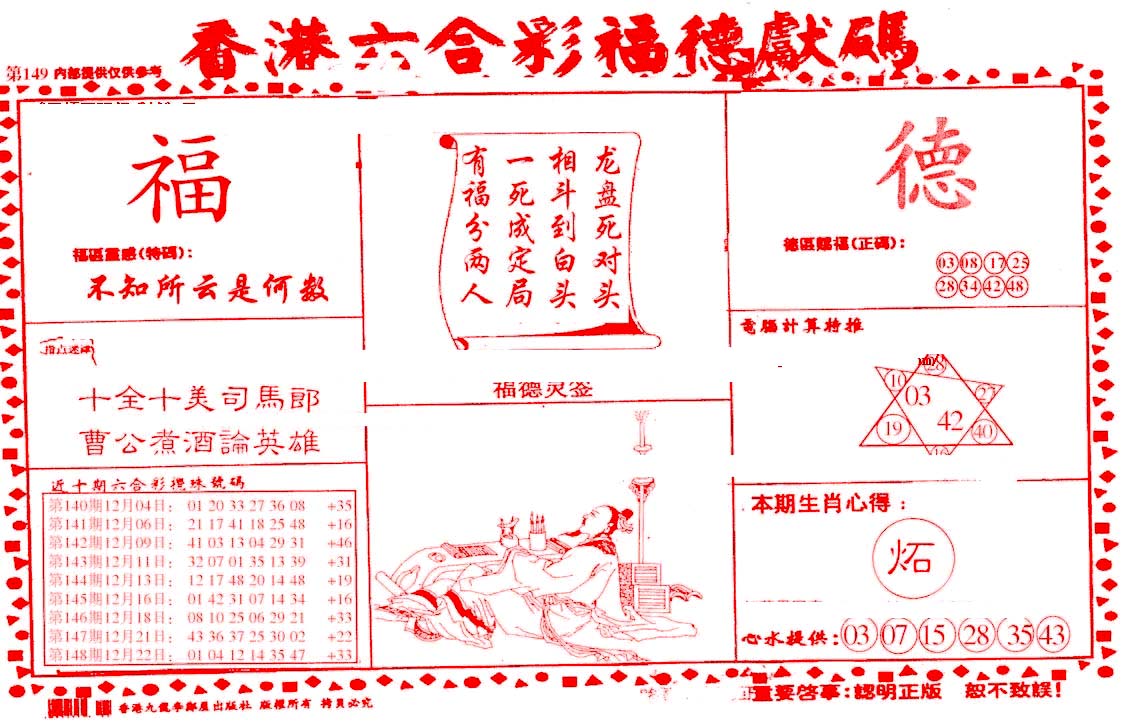 香港六合彩福德獻碼
第149 内部提供仅供参考
福
福區靈感(特碼):
不知所云是何數
指点迷津
十全十美司馬郎
曹公煮酒論英雄
近十期六合彩攪珠號碼
第140期12月04日: 01 20 33 27 36 08 +35
第141期12月06日: 21 17 41 18 25 48 +16
第142期12月09日: 41 03 13 04 29 31 +46
第143期12月11日: 32 07 01 35 13 39 +31
第144期12月13日: 12 17 48 20 14 48 +19
第145期12月16日: 01 42 31 07 14 34 +16
第146期12月18日: 08 10 25 06 29 21 +33
第147期12月21日: 43 36 37 25 30 02 +22
第148期12月22日: 01 04 12 14 35 47 +33
龙盘死对头
相斗到白头
一死成定局
有福分两人
福德灵签
德
德區賜福(正碼):
03 08 17 25
28 34 42 48
電腦計算特推
28
10 03 27
19 42 40
本期生肖心得:
炻
心水提供: 03 07 15 28 35 43
香港九龍李鄭屋出版社 版權所有 拷貝必究
重要啓事:認明正版 恕不致誤!